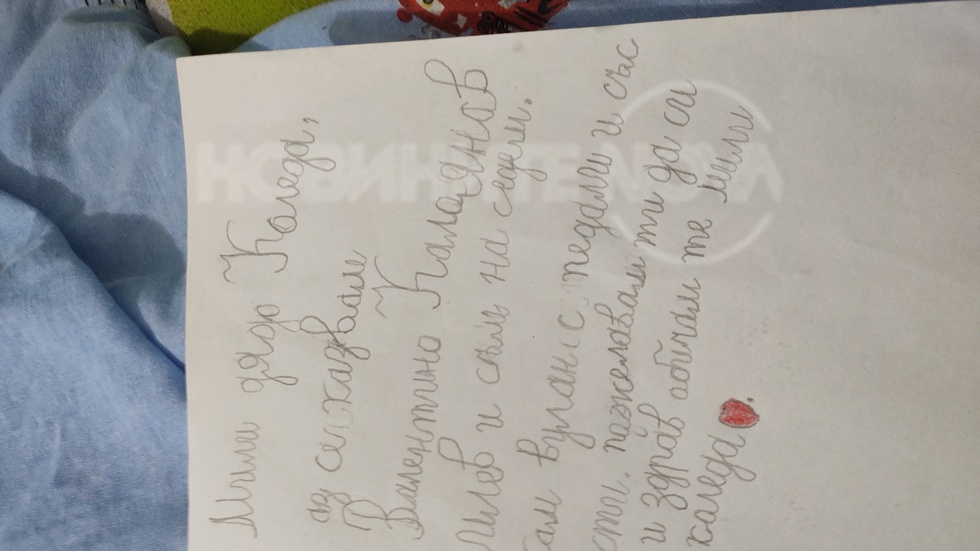 Мили дядо Коледа,
аз се казвам
Валентино Калоянов
лилев и съмь на седем.
вулан с педали и със
сти. пожелавам ти да си
и здрав обичам те мили
коледа